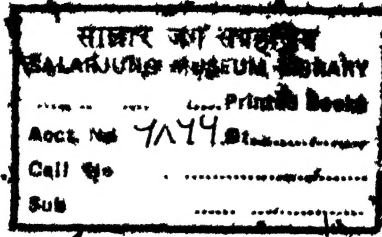 सालार जंग संग्रहालय
SALARJUNG MUSEUM LIBRARY
Printed Books
Acct. No
Call No
Sub